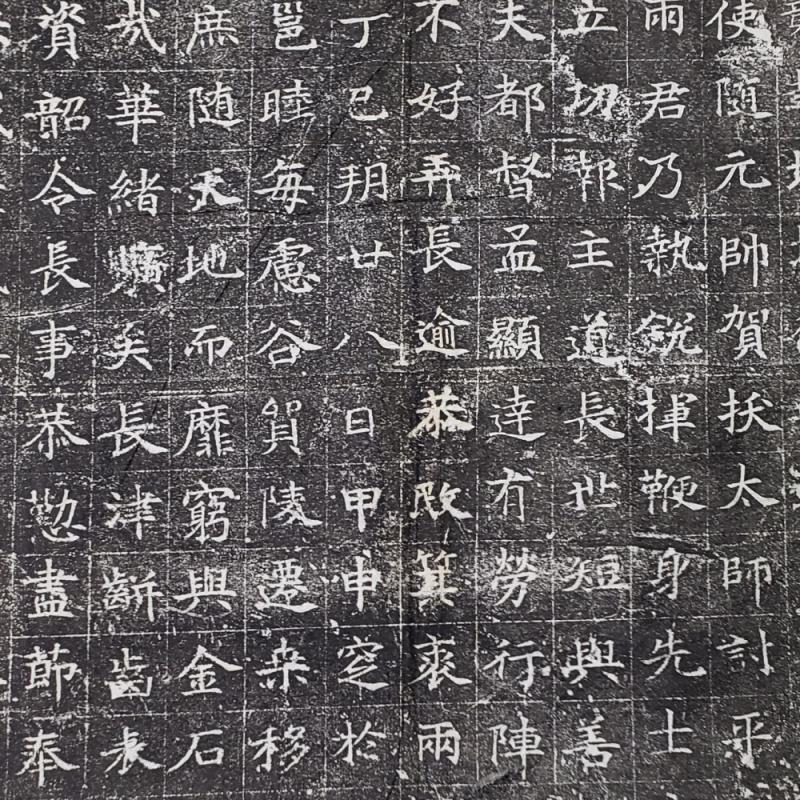 使随元帥賀拔太師討平
雨君乃執銳揮鞭身先士
立功報主道長世短與善
夫都督孟顯達有勞行陣
不好弄長逾恭敬箕裘兩
丁巳朔廿八日甲申窆於
邕睦每慮谷貿陵遷桒移
庶随天地而靡窮與金石
哉華緒曠矣長津齒表
資韶令長事恭懃盡節奉